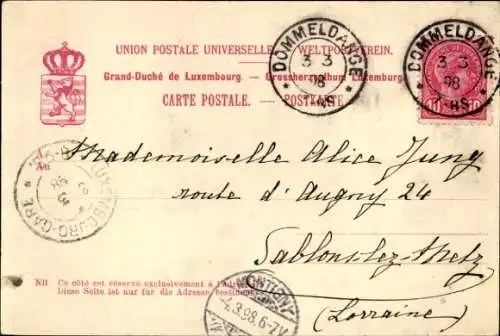 UNION POSTALE UNIVERSELLE. — WELTPOSTVEREIN.
Grand-Duché de Luxembourg. — Grossherzogthum Luxemburg.
CARTE POSTALE. — POSTKARTE.
DOMMELDANGE
3 3
98
7-8S
DOMMELDANGE
3 3
98
7-8S
10 10
An
Mademoiselle Alice Jung
route d'Augny 24
Sablons-lez-Metz
(Lorraine)
LUXEMBOURG-GARE
NB Ce côté est réservé exclusivement à l'adresse
Diese Seite ist nur für die Adresse bestimmt
MONTIGNY
4.3.98.6-7V